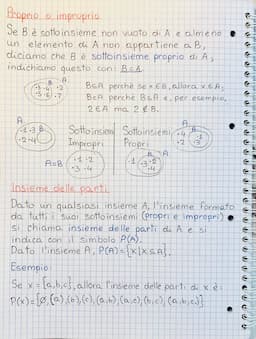 Proprio o improprio
Se B è sottoinsieme non vuoto di A e almeno
un elemento di A non appartiene a B,
diciamo che B è sottoinsieme proprio di A;
indichiamo questo con: B⊂A.
A
B
B⊆A perché se x∈B, allora x∈A;
B⊂A perché B⊆A e, per esempio,
2∈A ma 2∉B.
Sottoinsiemi Sottoinsiemi
Impropri Propri
A=B
Insieme delle parti
Dato un qualsiasi insieme A, l'insieme formato
da tutti i suoi sottoinsiemi (propri e impropri)
si chiama insieme delle parti di A e si
indica con il simbolo P(A).
Dato l'insieme A, P(A)={x|x⊆A}.
Esempio
Se x={a,b,c}, allora l'insieme delle parti di x è:
P(x)={∅,{a},{b},{c},{a,b},{a,c},{b,c},{a,b,c}}